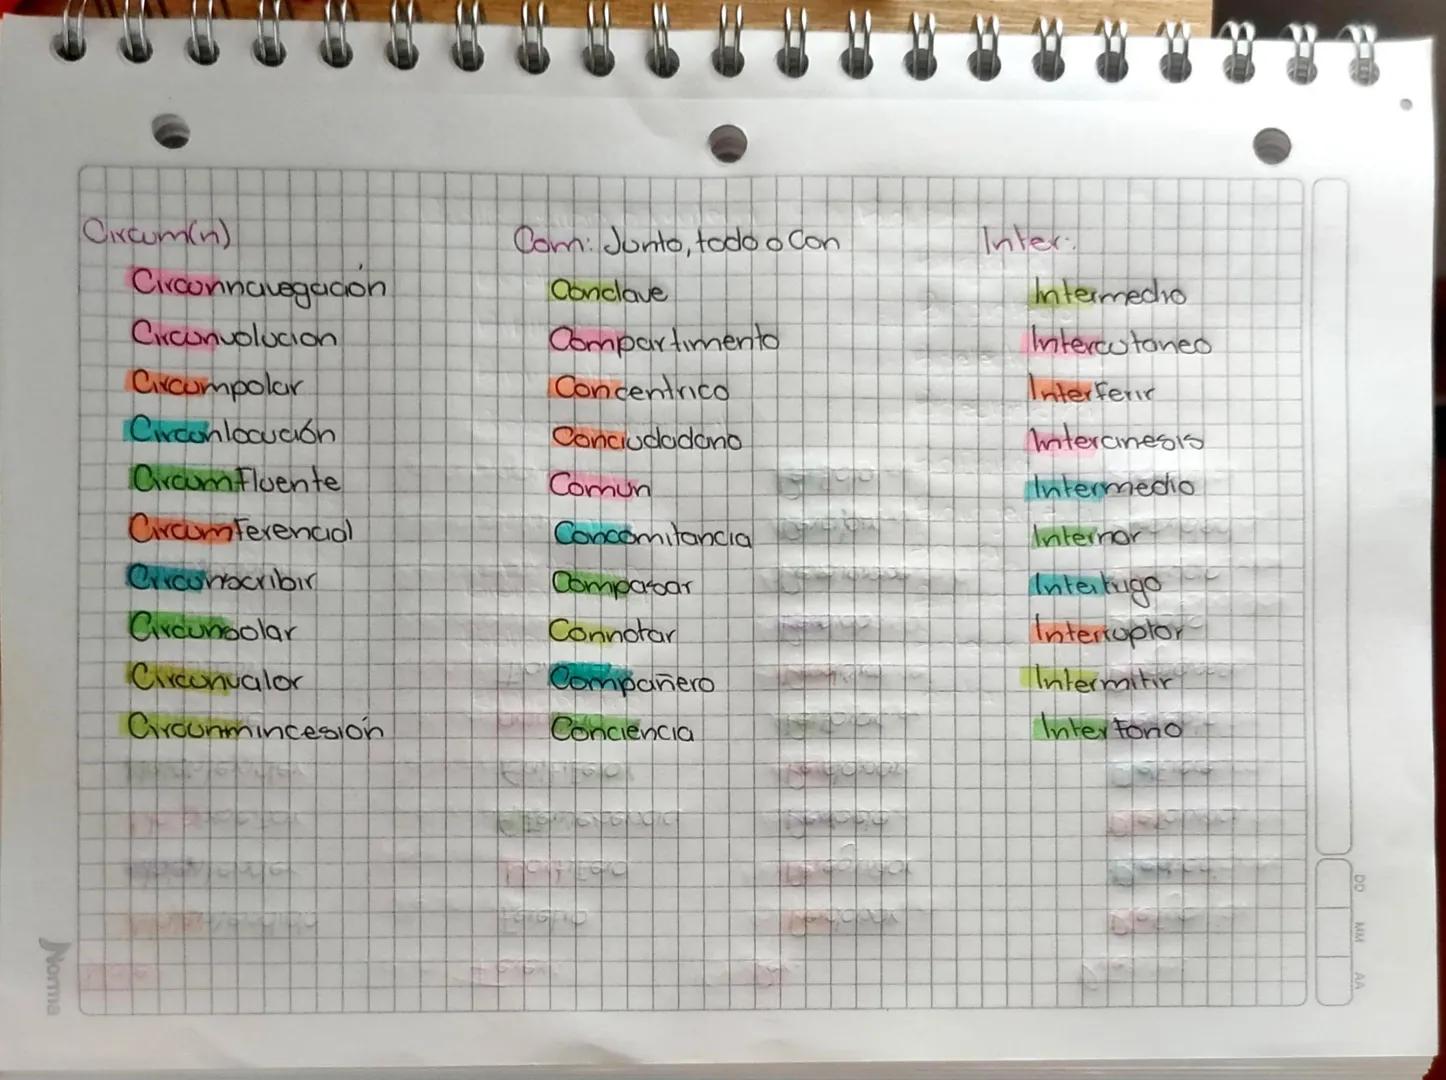 Circum(n)
Circunnavegación
Circunvolucion
Circumpolar
Circunlocución
Circumfluente
Circumferencial
Circunscribir
Circunsolar
Circunvalar
Circunmincesión
Com: Junto, todo o Con
Conclave
Compartimento
Concentrico
Conciudadano
Comun
Concomitancia
Compasar
Connotar
Compañero
Conciencia
Inter:
Intermedio
Intercutaneo
Interferir
Intercinesis
Intermedio
Internar
Intertrigo
Interruptor
Intermitir
Interfono
DD
MM
AA
Norma